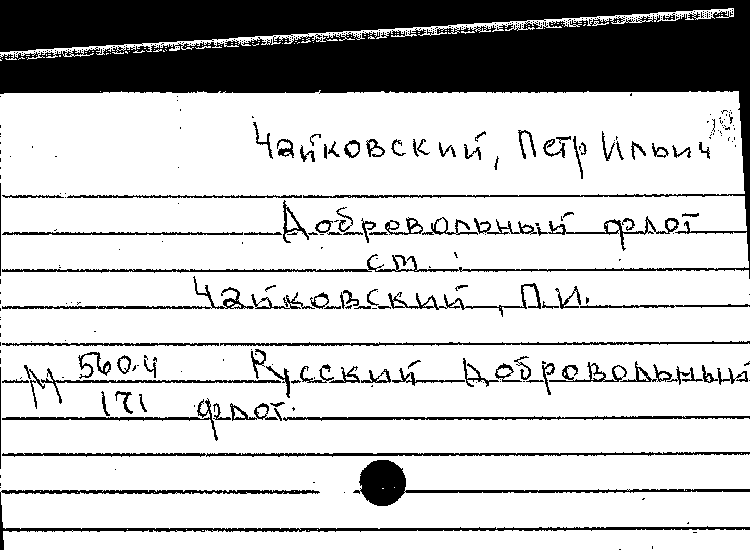 Чайковский, Петр Ильич
Добровольный флот
ст.:
Чайковский, П.И.
М 560.4 Русский Добровольный
171 флот.